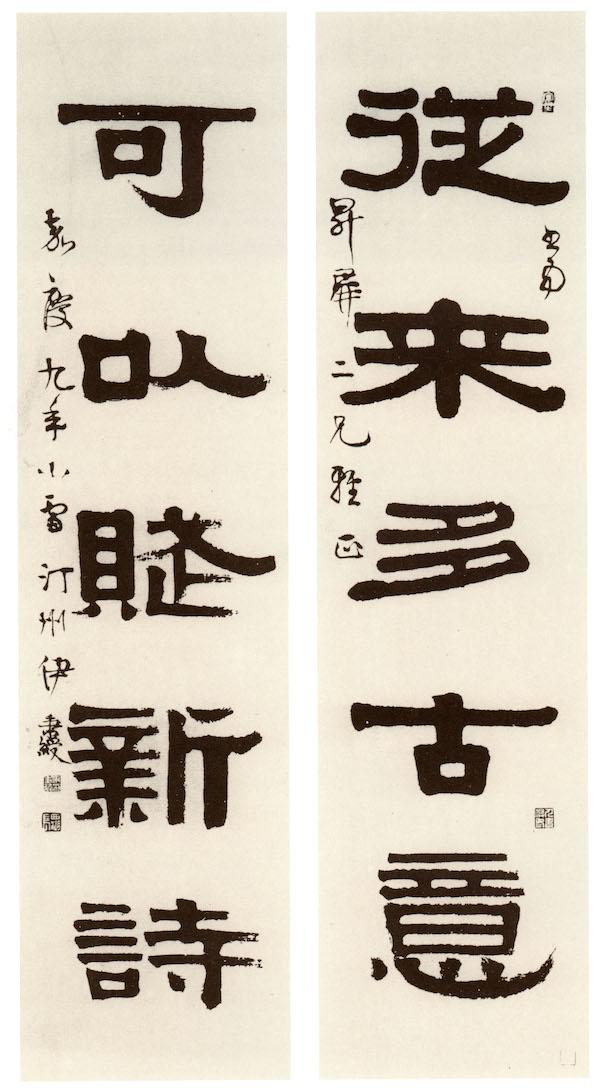 書為
從来多古意
昇屏二兄雅正
可以賦新詩
嘉慶九年小雪汀州伊秉綬